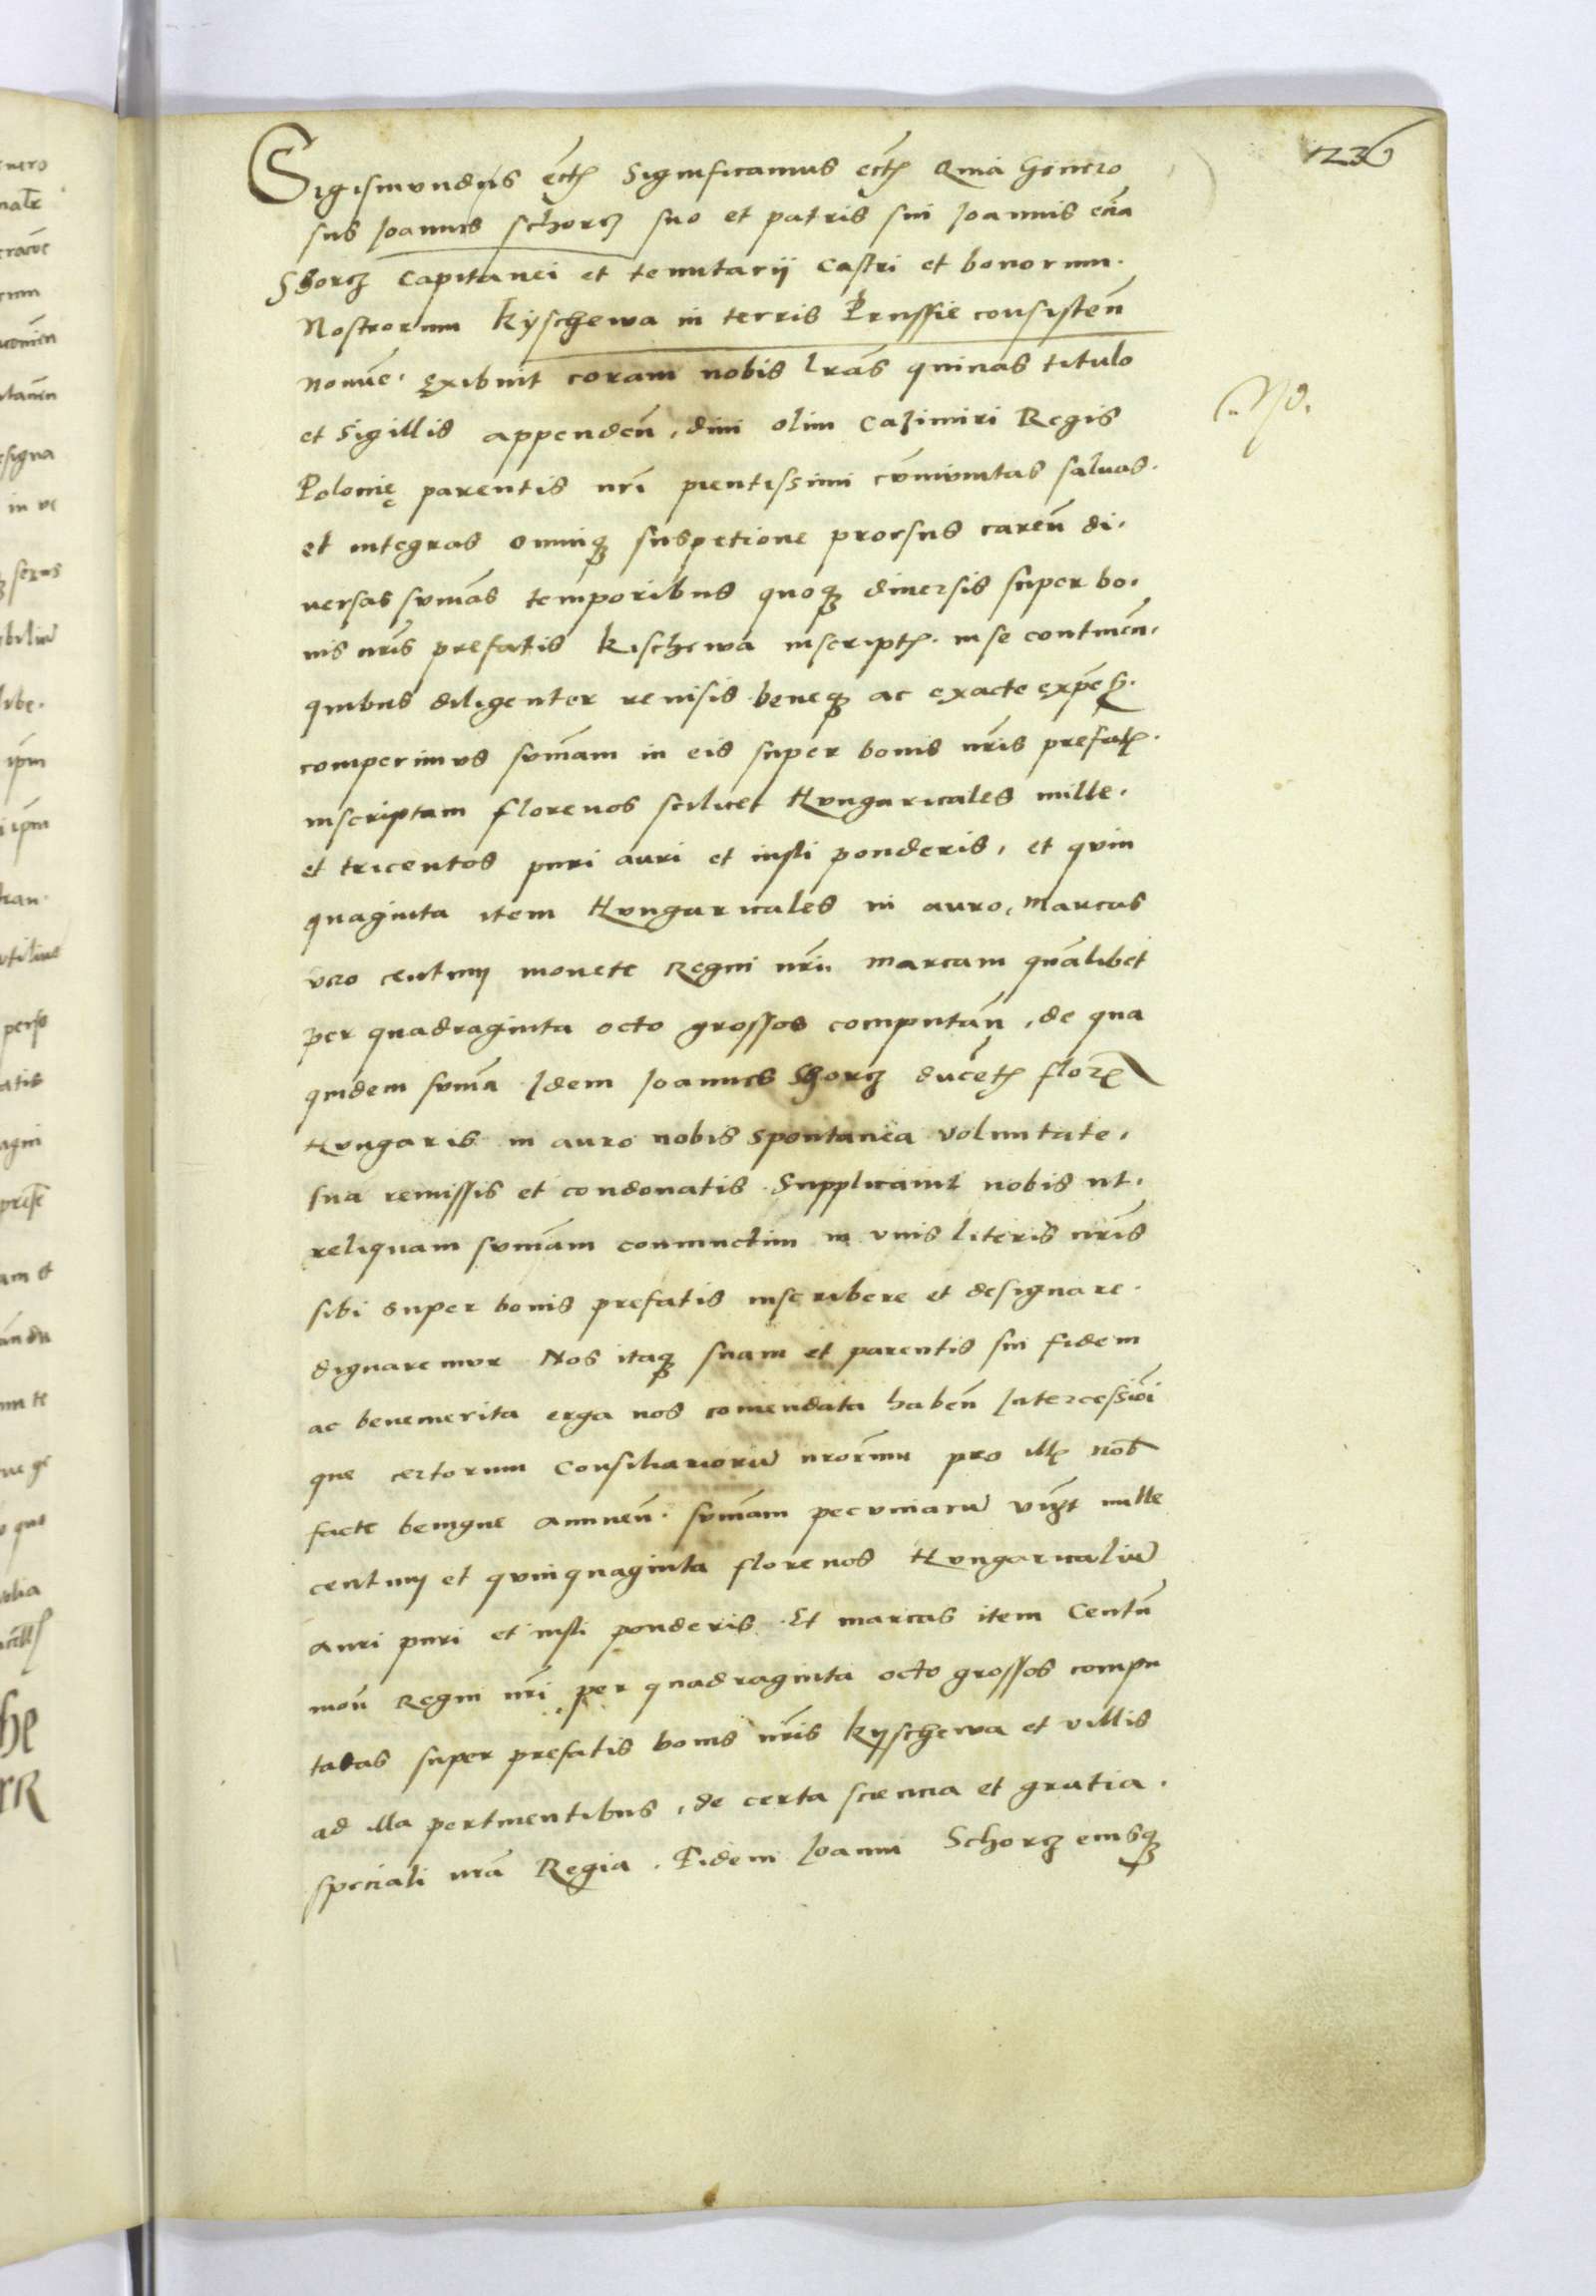 1236
Sigismundus ect̃ Significamus ect̃ Quia Genero
sus Joannes Schorcz suo et patris sui Joannis etiã
Schorcz capitanei et tenutarij castri et bonorum.
Nostrorum Kyschewa in terris Prussie consisteñ
nomĩe. exibuit coram nobis lr̃as quinas titulo
et sigillis appendeñ, diui olim Cazimiri Regis
Polonię parentis nr̃i pientissimi cõmunitas saluas.
et integras omniq; suspetione prorsus careñ di.
uersas sum̃as temporibus quoq; diuersis super bo.
nis nr̃is prefatis Kischewa inscript̃. in se contineñ.
quibus diligenter reuisis beneq; ac exacte expeñ.
comperimus sum̃am in eis super bonis nr̃is prefat̃.
inscriptam florenos scilicet Hungaricales mille.
et tricentos puri auri et iusti ponderis, et quin
quaginta item Hungaricales in auro, Marcas
vero centum monete Regni nr̃i marcam quãlibet
per quadraginta octo grossos computañ, de qua
quidem sum̃a Idem Joannes Schorcz ducẽt̃ flor̃
Hungaris in auro nobis spontanea voluntate.
sua remissis et condonatis. Supplicauit nobis ut.
reliquam sum̃am coniunctim in vnis literis nr̃is
sibi super bonis prefatis inscribere et designare.
dignaremur Nos itaq; suam et parentis sui fidem
ac benemerita erga nos comendata habeñ Intercessiõi
que certorum Consiliariorũ nrõrum pro ill̃ nob̃
facte benigne annueñ. sum̃am pecuniarũ vĩꝫt mille
centum et quinquaginta florenos Hungaricaliũ
auri puri et iusti ponderis. Et marcas item Centũ
moñ Regni nr̃i per quadraginta octo grossos compu
tatas super prefatis bonis nr̃is Kyschewa et villis
ad illa pertinentibus, de certa sciencia et gratia.
speciali nr̃a Regia. Eidem Joanni Schorcz eiusq;